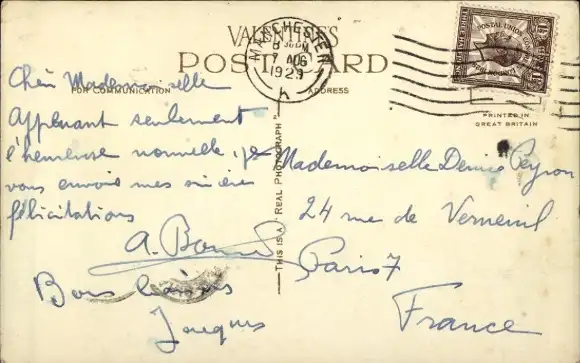 VALENTINES
POST CARD
FOR COMMUNICATION
ADDRESS
MANCHESTER
7 AUG
1929
POSTAL UNION
PRINTED IN
GREAT BRITAIN
THIS IS A REAL PHOTOGRAPH
Chère Mademoiselle
Apprenant seulement
l'heureuse nouvelle, je
vous envoie mes sincères
félicitations
A.
Bons baisers
Jacques
Mademoiselle Denise Peyron
24 rue de Verneuil
Paris 7
France